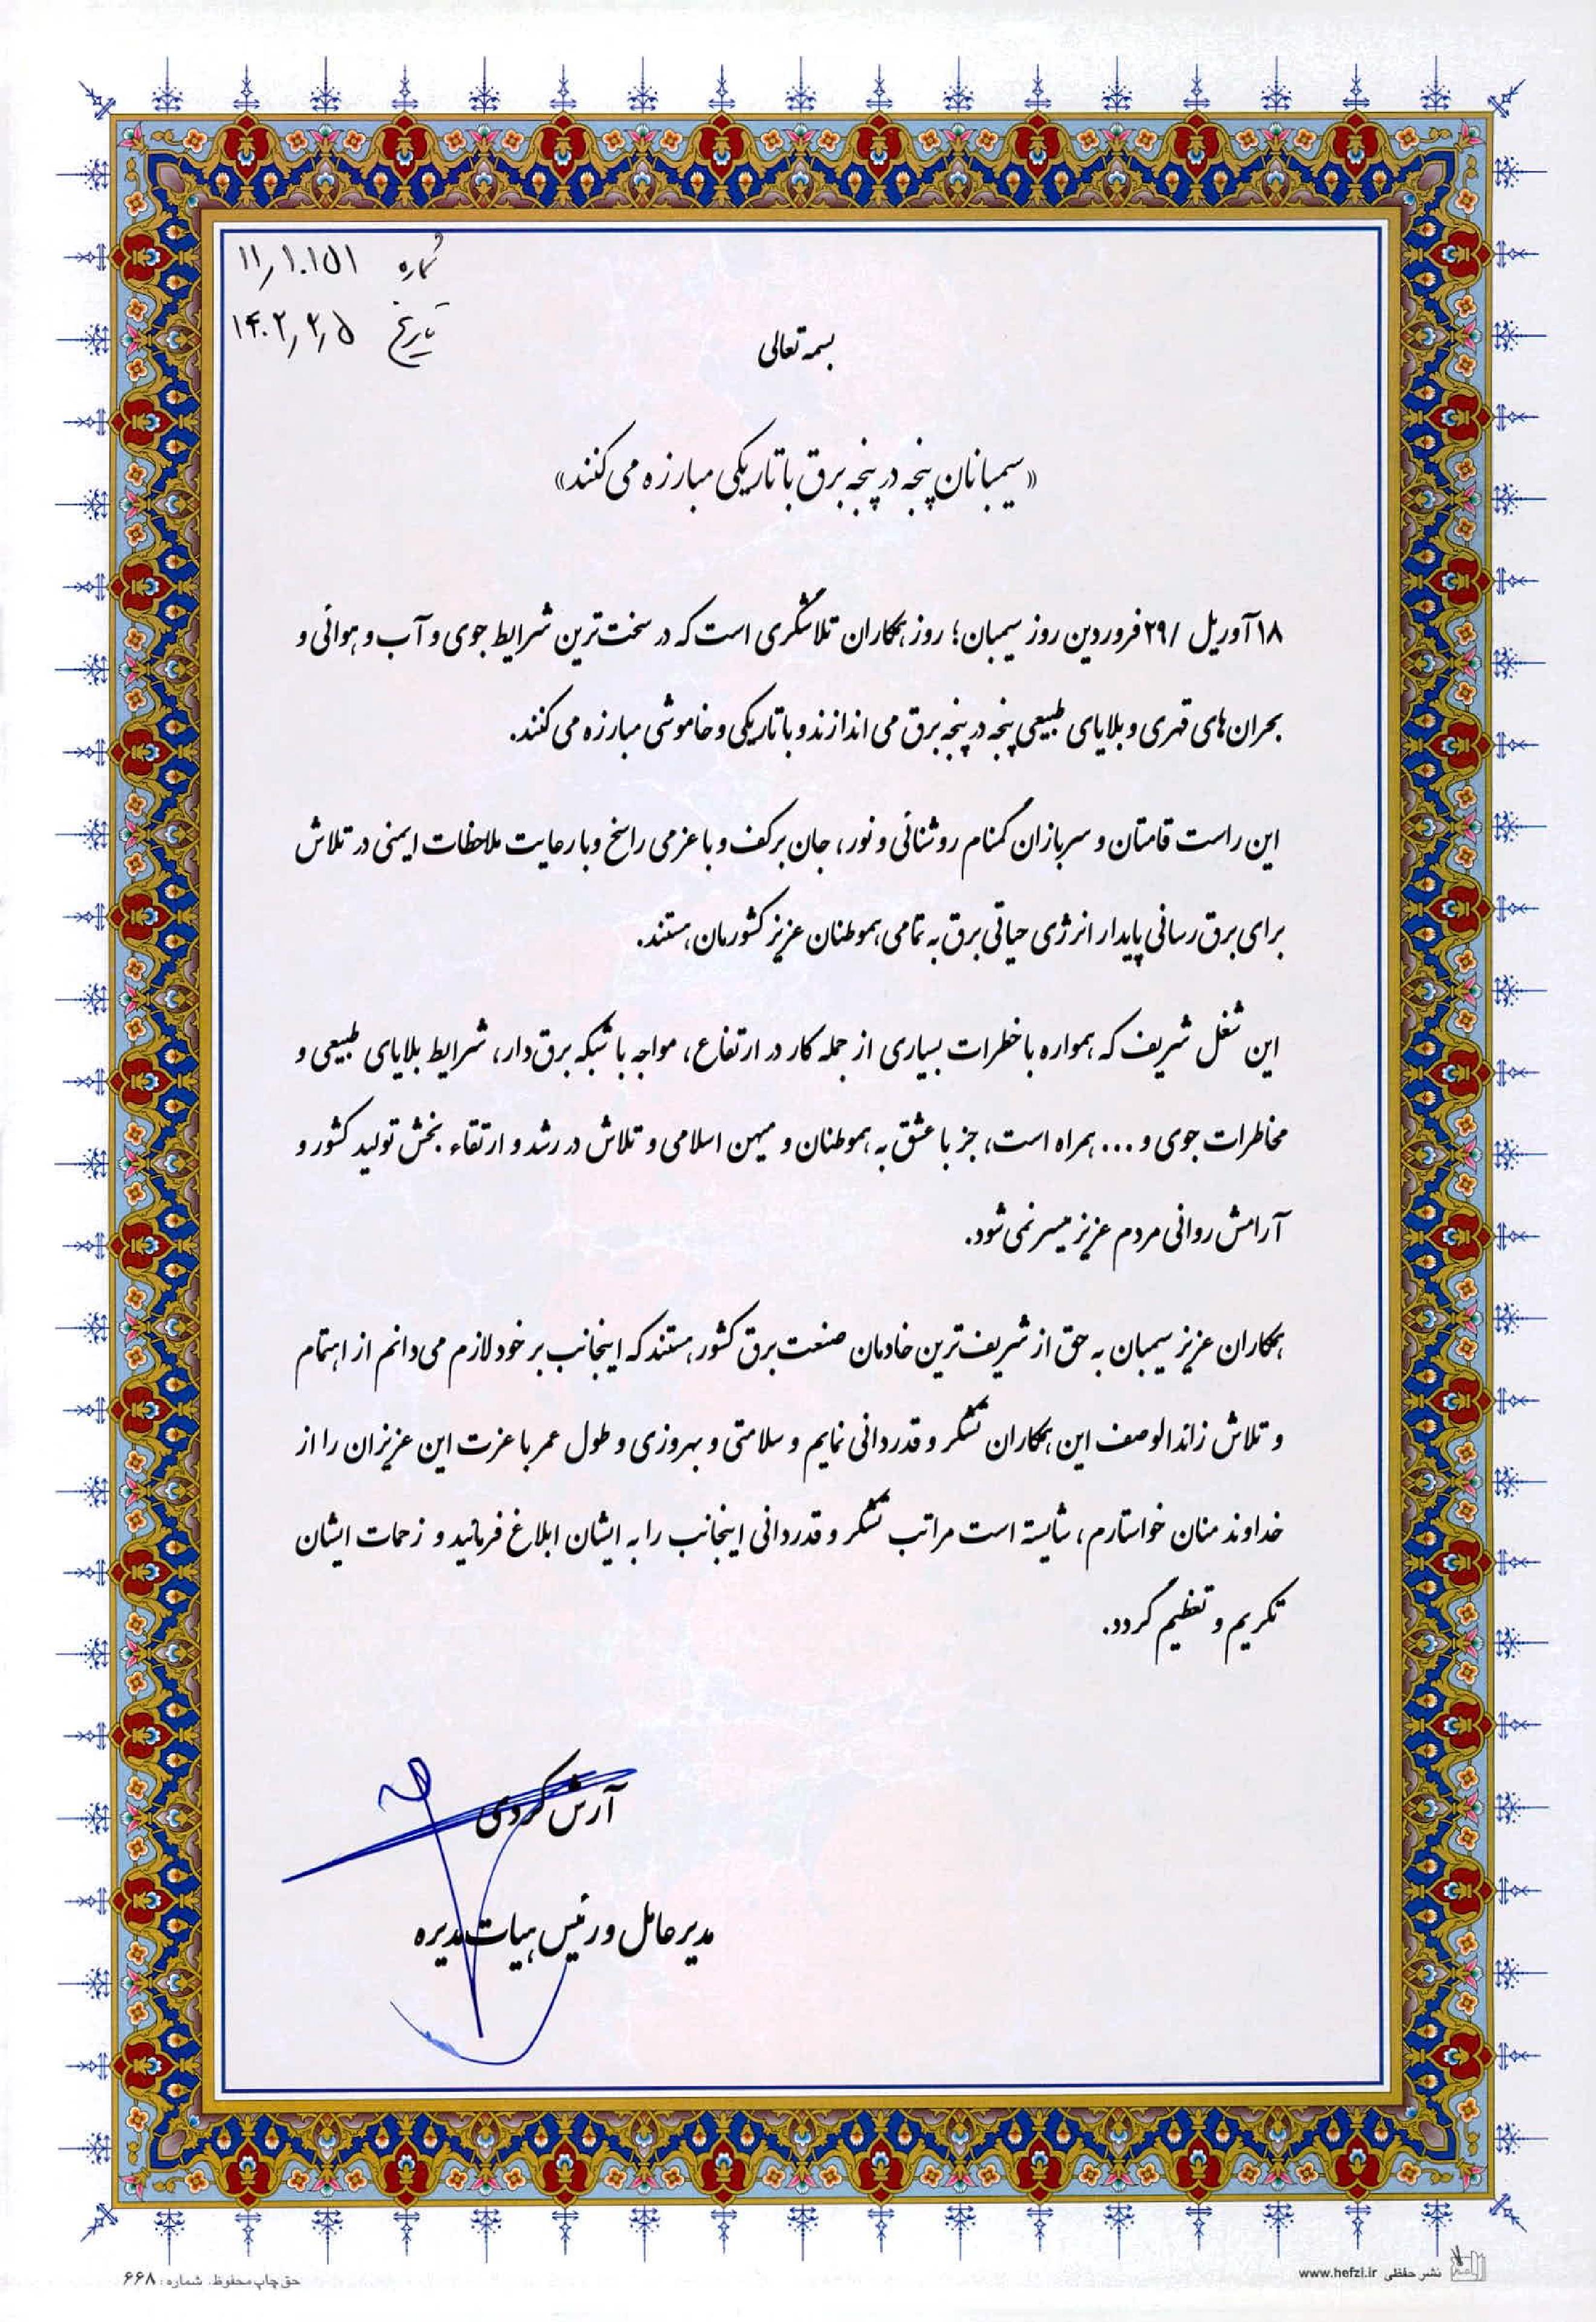 شماره ۱۱/۱۰۱۵۱
تاریخ ۱۴۰۲/۲/۵
بسمه تعالی
«سیمبانان پنجه در پنجه برق با تاریکی مبارزه می کنند»
۱۸ آوریل /۲۹ فروردین روز سیمبان؛ روز همکاران تلاشگری است که در سخت‌ترین شرایط جوی و آب و هوائی و
بحران‌های قهری و بلایای طبیعی پنجه در پنجه برق می اندازند و با تاریکی و خاموشی مبارزه می کنند.
این راست قامتان و سربازان گمنام روشنائی و نور، جان برکف و با عزمی راسخ و با رعایت ملاحظات ایمنی در تلاش
برای برق رسانی پایدار انرژی حیاتی برق به تمامی هموطنان عزیز کشورمان هستند.
این شغل شریف که همواره با خطرات بسیاری از جمله کار در ارتفاع، مواجه با شبکه برق‌دار، شرایط بلایای طبیعی و
مخاطرات جوی و ... همراه است، جز با عشق به هموطنان و میهن اسلامی و تلاش در رشد و ارتقاء بخش تولید کشور و
آرامش روانی مردم عزیز میسر نمی شود.
همکاران عزیز سیمبان به حق از شریف‌ترین خادمان صنعت برق کشور هستند که اینجانب بر خود لازم می‌دانم از اهتمام
و تلاش زائدالوصف این همکاران تشکر و قدردانی نمایم و سلامتی و بهروزی و طول عمر با عزت این عزیزان را از
خداوند منان خواستارم، شایسته است مراتب تشکر و قدردانی اینجانب را به ایشان ابلاغ فرمائید و زحمات ایشان
تکریم و تعظیم گردد.
آرش کردی
مدیرعامل و رئیس هیات مدیره
نشر حفظی www.hefzi.ir
حق چاپ محفوظ. شماره: ۶۶۸